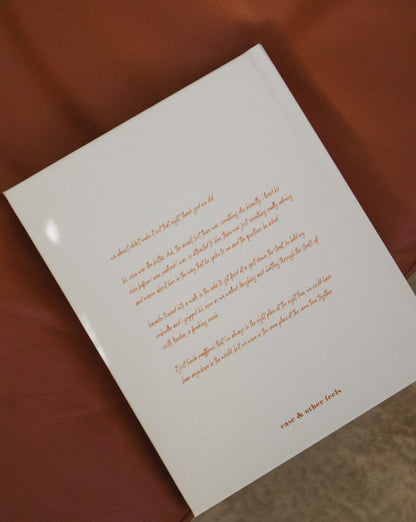 we almost didn't make it out that night. thank god we did
his voice was like butter
the accent, but there was something else. honestly, i liked his
voice before i even realised i was so attracted to him. there was just something really calming
and warm about him in the way that he spoke to me and the questions he asked
turned into a walk in the rain to get food at a spot down the street. he held my
umbrella and i gripped his arm as we walked, laughing and chatting through the streets of
south london, a freaking movie.
it just kinda reaffirms that i'm always in the right place at the right time. we could have
been anywhere in the world but we were in the same place at the same time. together.
ease & other feels